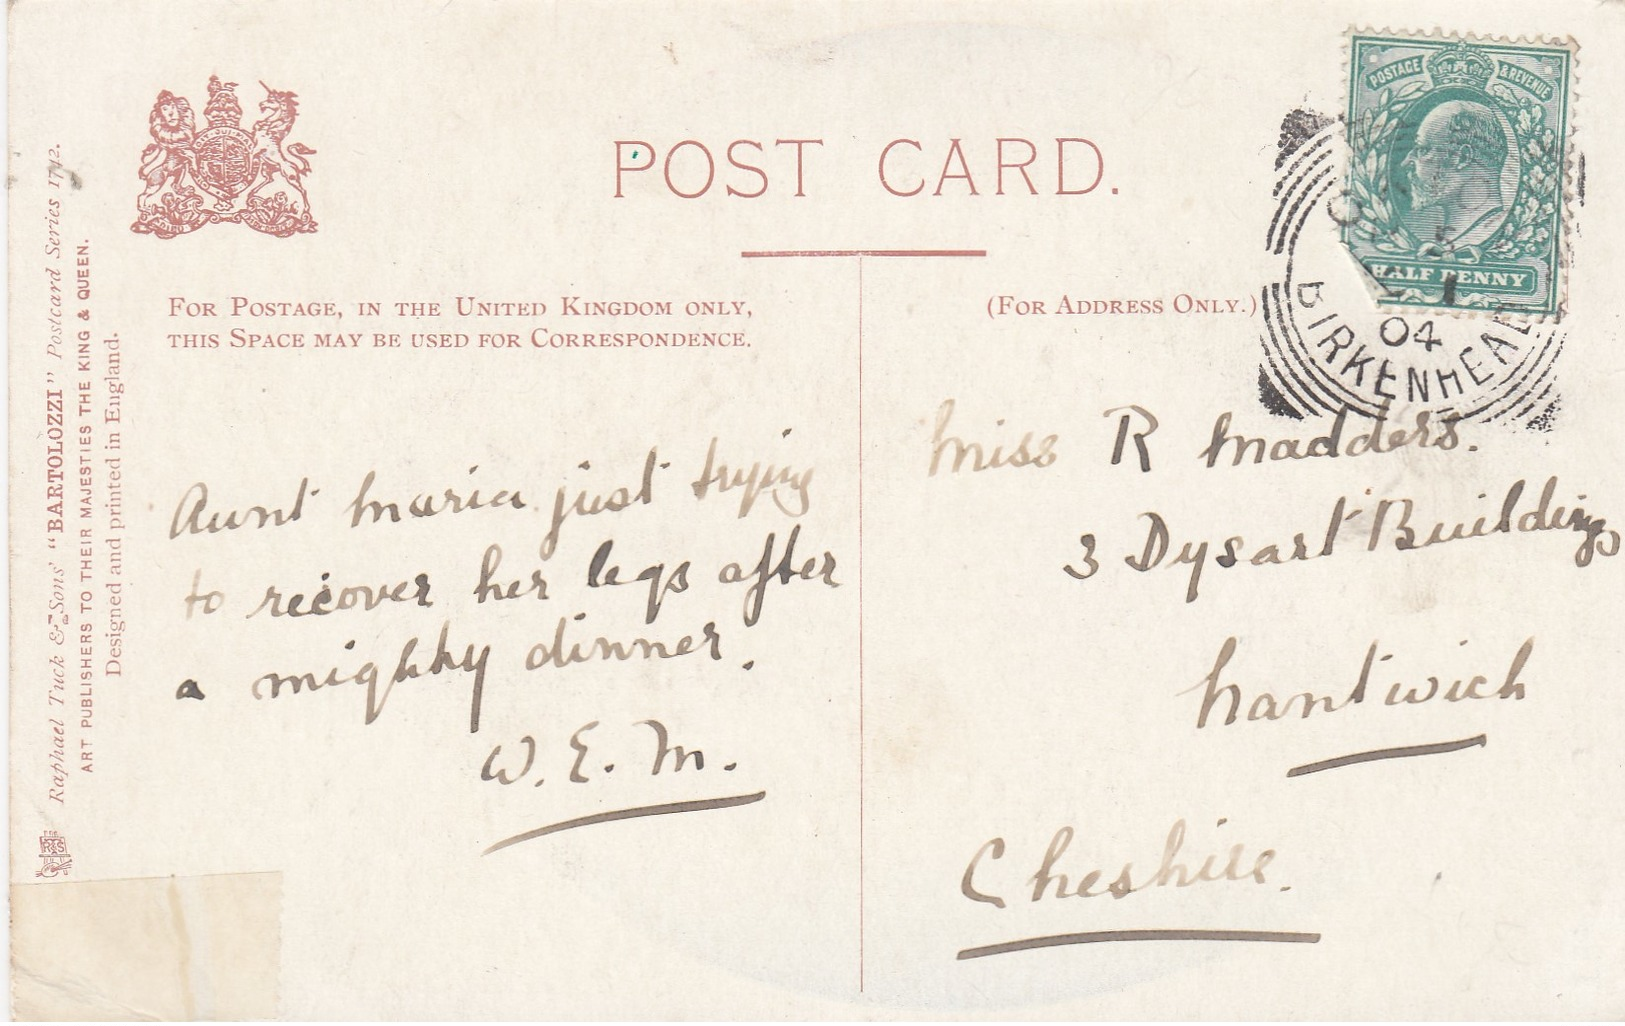 POST CARD.
FOR POSTAGE, IN THE UNITED KINGDOM ONLY,
THIS SPACE MAY BE USED FOR CORRESPONDENCE.
(FOR ADDRESS ONLY.)
Raphael Tuck & Sons' "BARTOLOZZI" Postcard Series 1742.
ART PUBLISHERS TO THEIR MAJESTIES THE KING & QUEEN.
Designed and printed in England.
Aunt Maria just trying
to recover her legs after
a mighty dinner.
W. E. M.
Miss R Madders.
3 Dysart Buildings
Nantwich
Cheshire.
POSTAGE & REVENUE
HALF PENNY
04
BIRKENHEAD